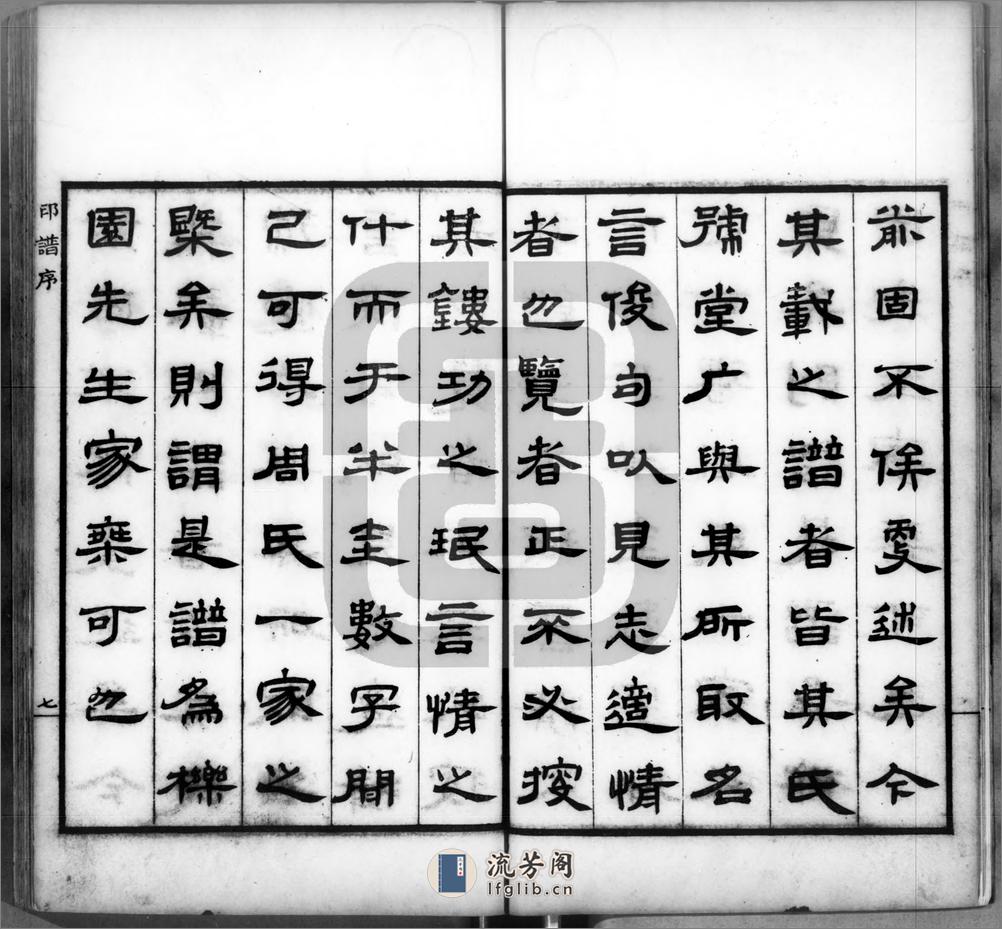 前固不俟叓述矣今
其載之譜者皆其氏
號堂广與其所取名
言俊句以見志適情
者也覽者正不必按
其鏤功之珉言情之
什而于半圭數字間
已可得周氏一家之
槩矣則謂是譜為櫟
園先生家乘可也
印譜序
七
流芳阁
lfglib.cn